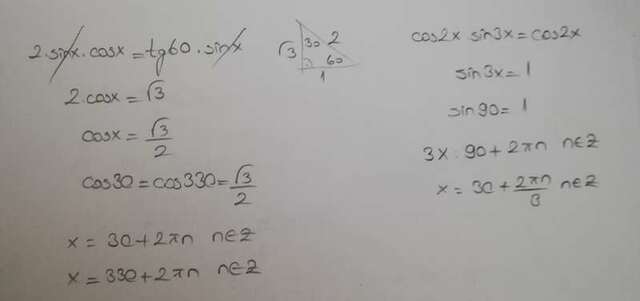 2.sinx.cosx = tg60.sinx
2.cosx = √3
cosx = √3/2
cos30 = cos330 = √3/2
x = 30+2πn n∈Z
x = 330+2πn n∈Z
√3 30 2
60
1
cos2x sin3x = cos2x
sin3x = 1
sin90 = 1
3x: 90+2πn n∈Z
x = 30+2πn/3 n∈Z